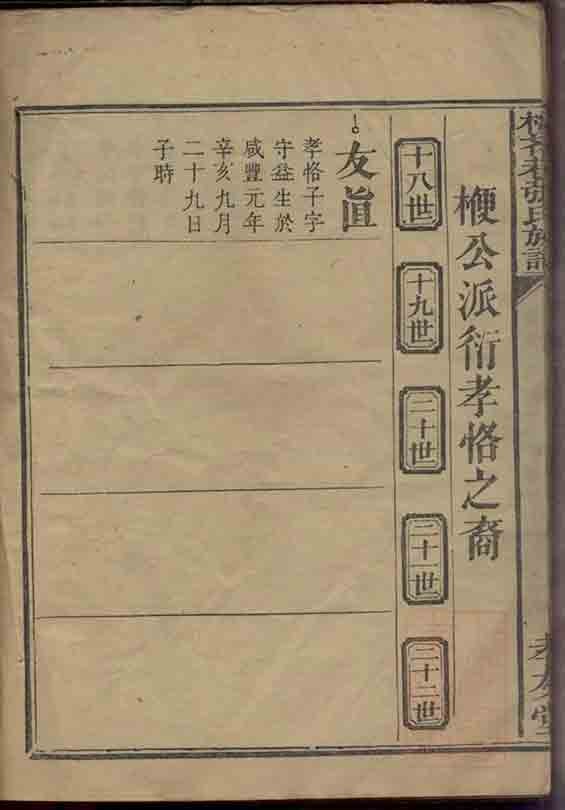 張氏族譜
孝友堂
楩公派衍孝恪之裔
十八世
十九世
二十世
二十一世
二十二世
友直
孝恪子字
守益生於
咸豐元年
辛亥九月
二十九日
子時